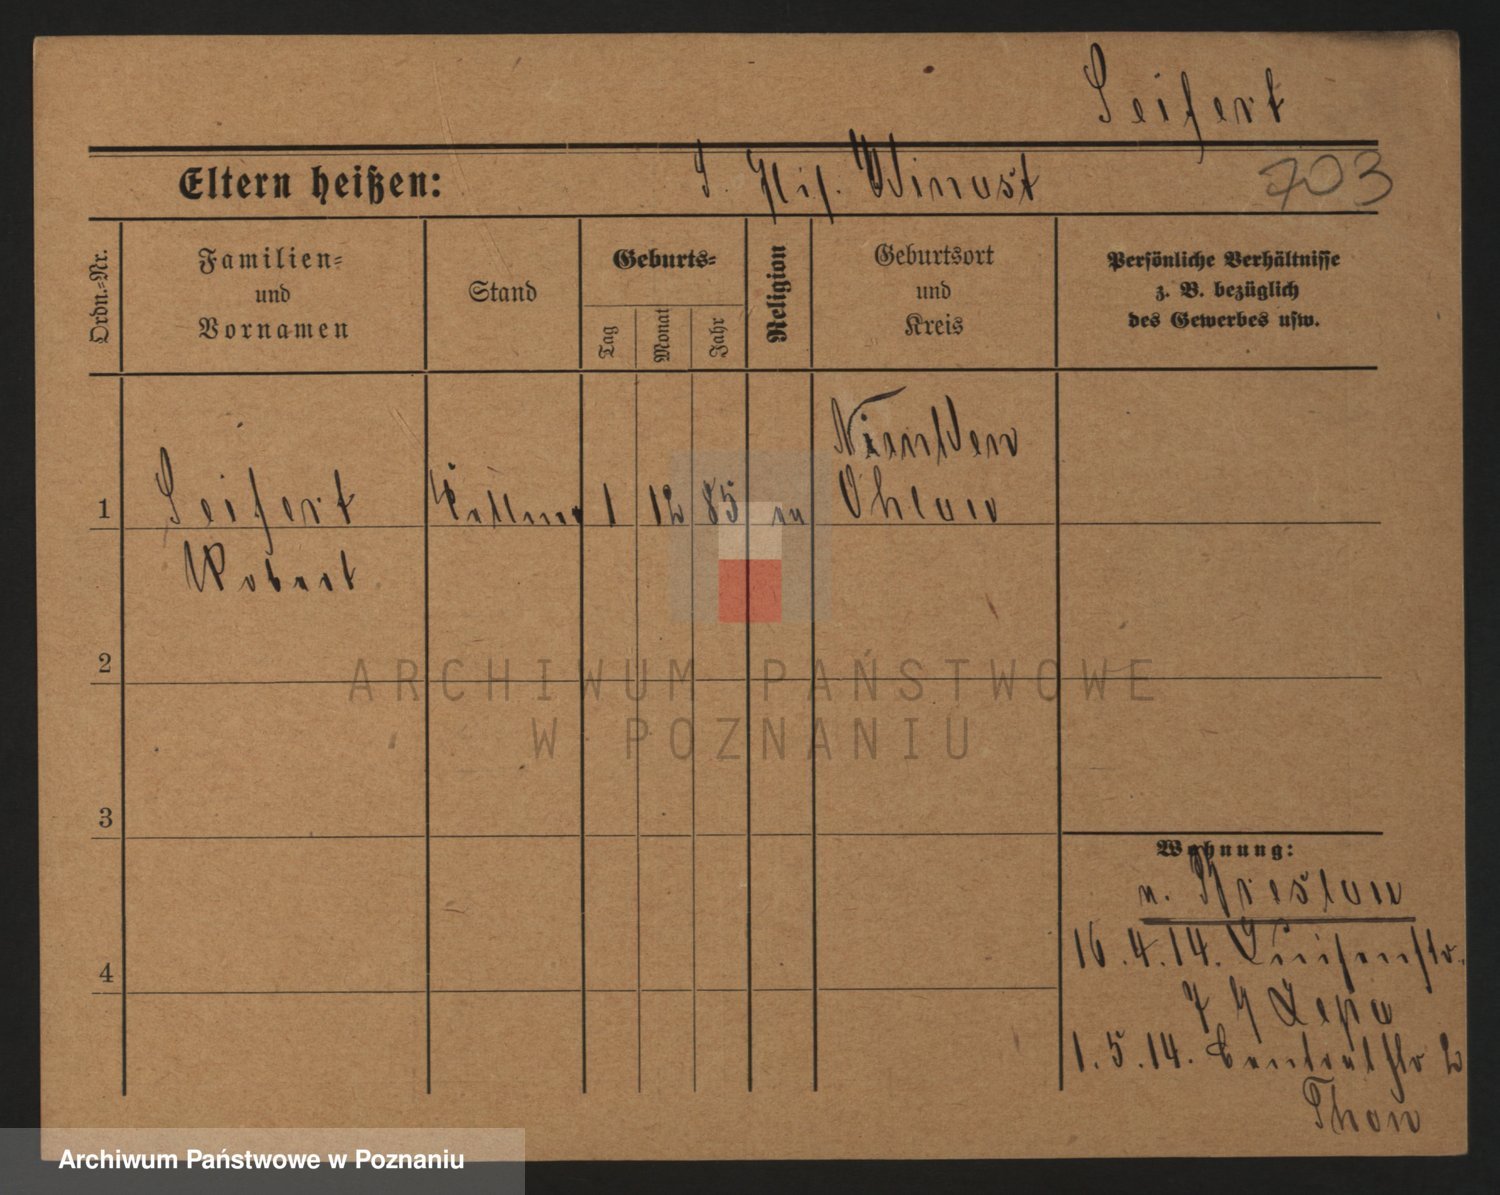 Seifert
Eltern heißen:
703
Ordn.-Nr.
Familien-
und
Vornamen
Stand
Geburts-
Tag
Monat
Jahr
Religion
Geburtsort
und
Kreis
Persönliche Verhältnisse
z. B. bezüglich
des Gewerbes usw.
1
Seifert
Kellner
1
12
85
Ohlau
Robert
2
3
4
Wohnung:
n. Breslau
16.4.14. Luisenstr.
7
1.5.14. Centralstr 2
Thon
ARCHIWUM PAŃSTWOWE
W POZNANIU
Archiwum Państwowe w Poznaniu